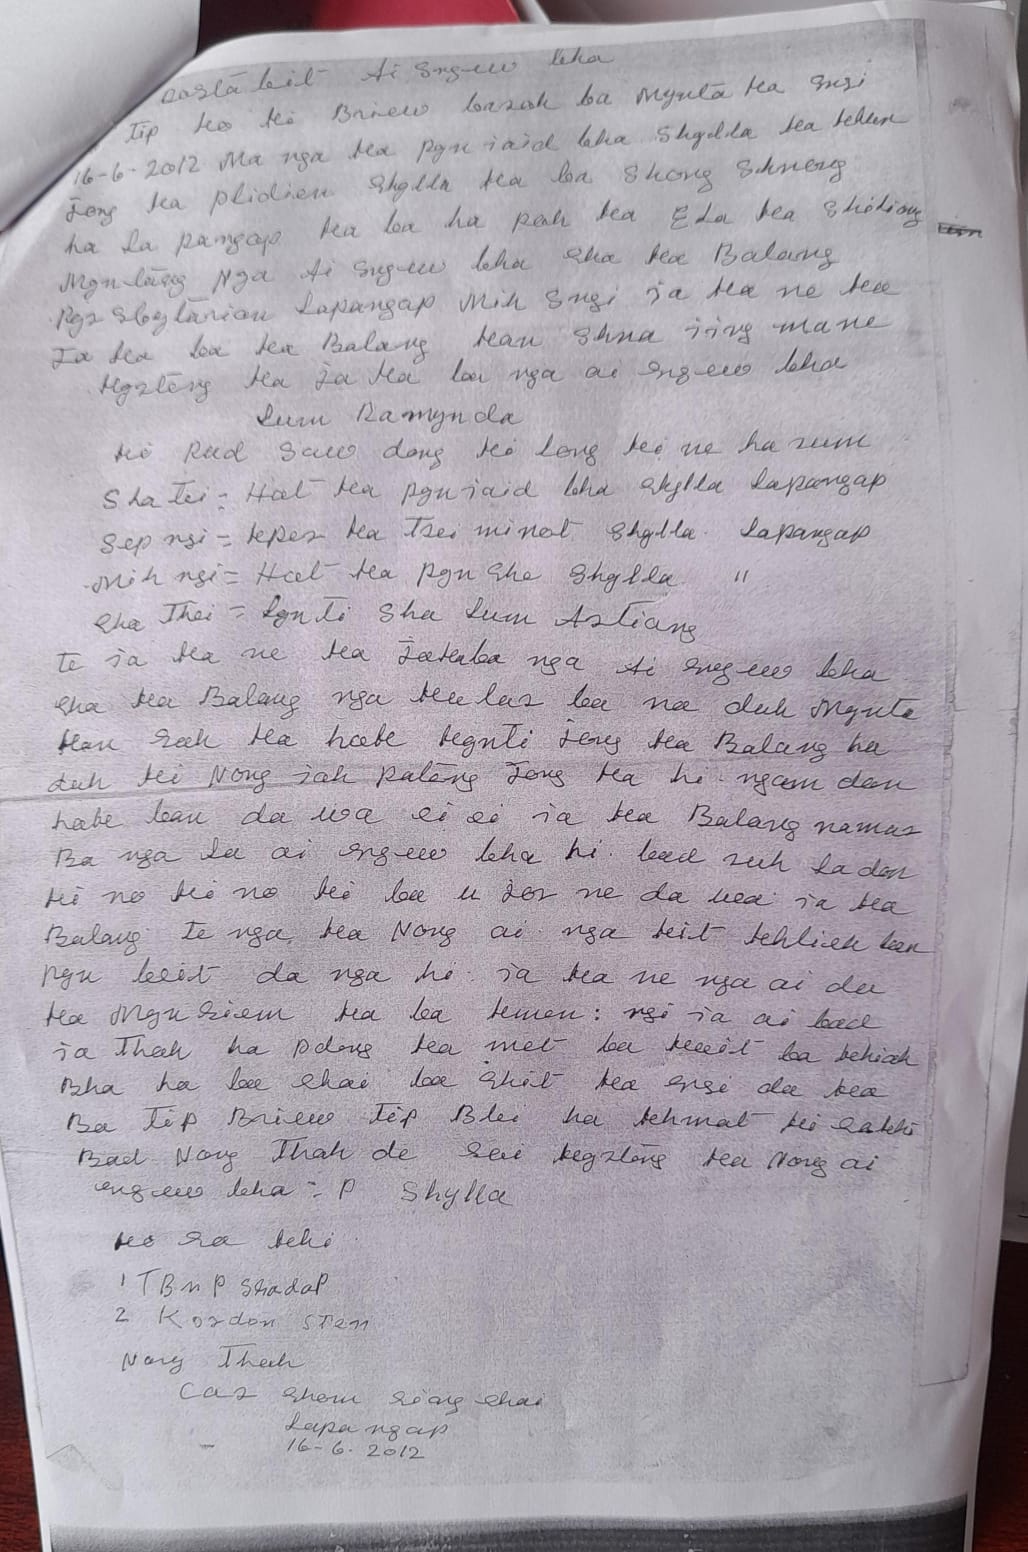 Dastabit Ai Sngew bha
Tip ko ki Briew baroh ba Mynta ka Sngi
16-6-2012 Ma nga ka Pyniaid bha Shylla ka khun
Jong ka plidien Shylla ka ba Shong Shnong
ha La pangap ka ba ha poh ka Ela ka
Mynlang Nga Ai Sngew bha Sha ka Balang
Presbytarian Lapangap Mih Sngi ia ka ne ka
Ja ka ba ka Balang kan Shna iing mane
kyrteng ka Ja ka ba nga ai sngew bha
Lum Ramynda
ki Pud Saw dong ki long ki ne ha rum
Shatei = Hat ka Pyniaid bha Shylla Lapangap
Sep ngi = kper ka Trei minot Shylla. Lapangap
Mih ngi = Hat ka Pyn She Shylla "
Sha Thei = Lynti Sha Lum Artiang
Te ia ka ne ka Jakaba nga Ai sngew bha
Sha ka Balang nga kular ba na duh Mynta
kan rah ka habe kynti Jong ka Balang ha
duh ki Nong iah Pateng Jong ka hi. ngam don
habe ban da wa ei ei ia ka Balang namar
Ba nga La ai sngew bha hi. bad ruh La don
ki no ki no ki ba u Jor ne da wa ia ka
Balang te nga ka Nong ai nga kit khlieh ban
Pyn beit da nga hi. ia ka ne nga ai da
ka Mynsiem ka ba kmen: ngi ia ai bad
ia Thoh ha Pdeng ka met ba koit ba khiah
Bha ha ba Shai ba Shit ka sngi da ka
Ba Tip Briew Tip Blei ha khmat ki sakhi
Bad Nong Thoh de Sei kyrteng ka Nong ai
sngew bha = P Shylla
ko sa khi
1 TBn P Shadap
2 Kordon Sten
Nong Thoh
Car Shom Siang Shai
Lapangap
16-6-2012